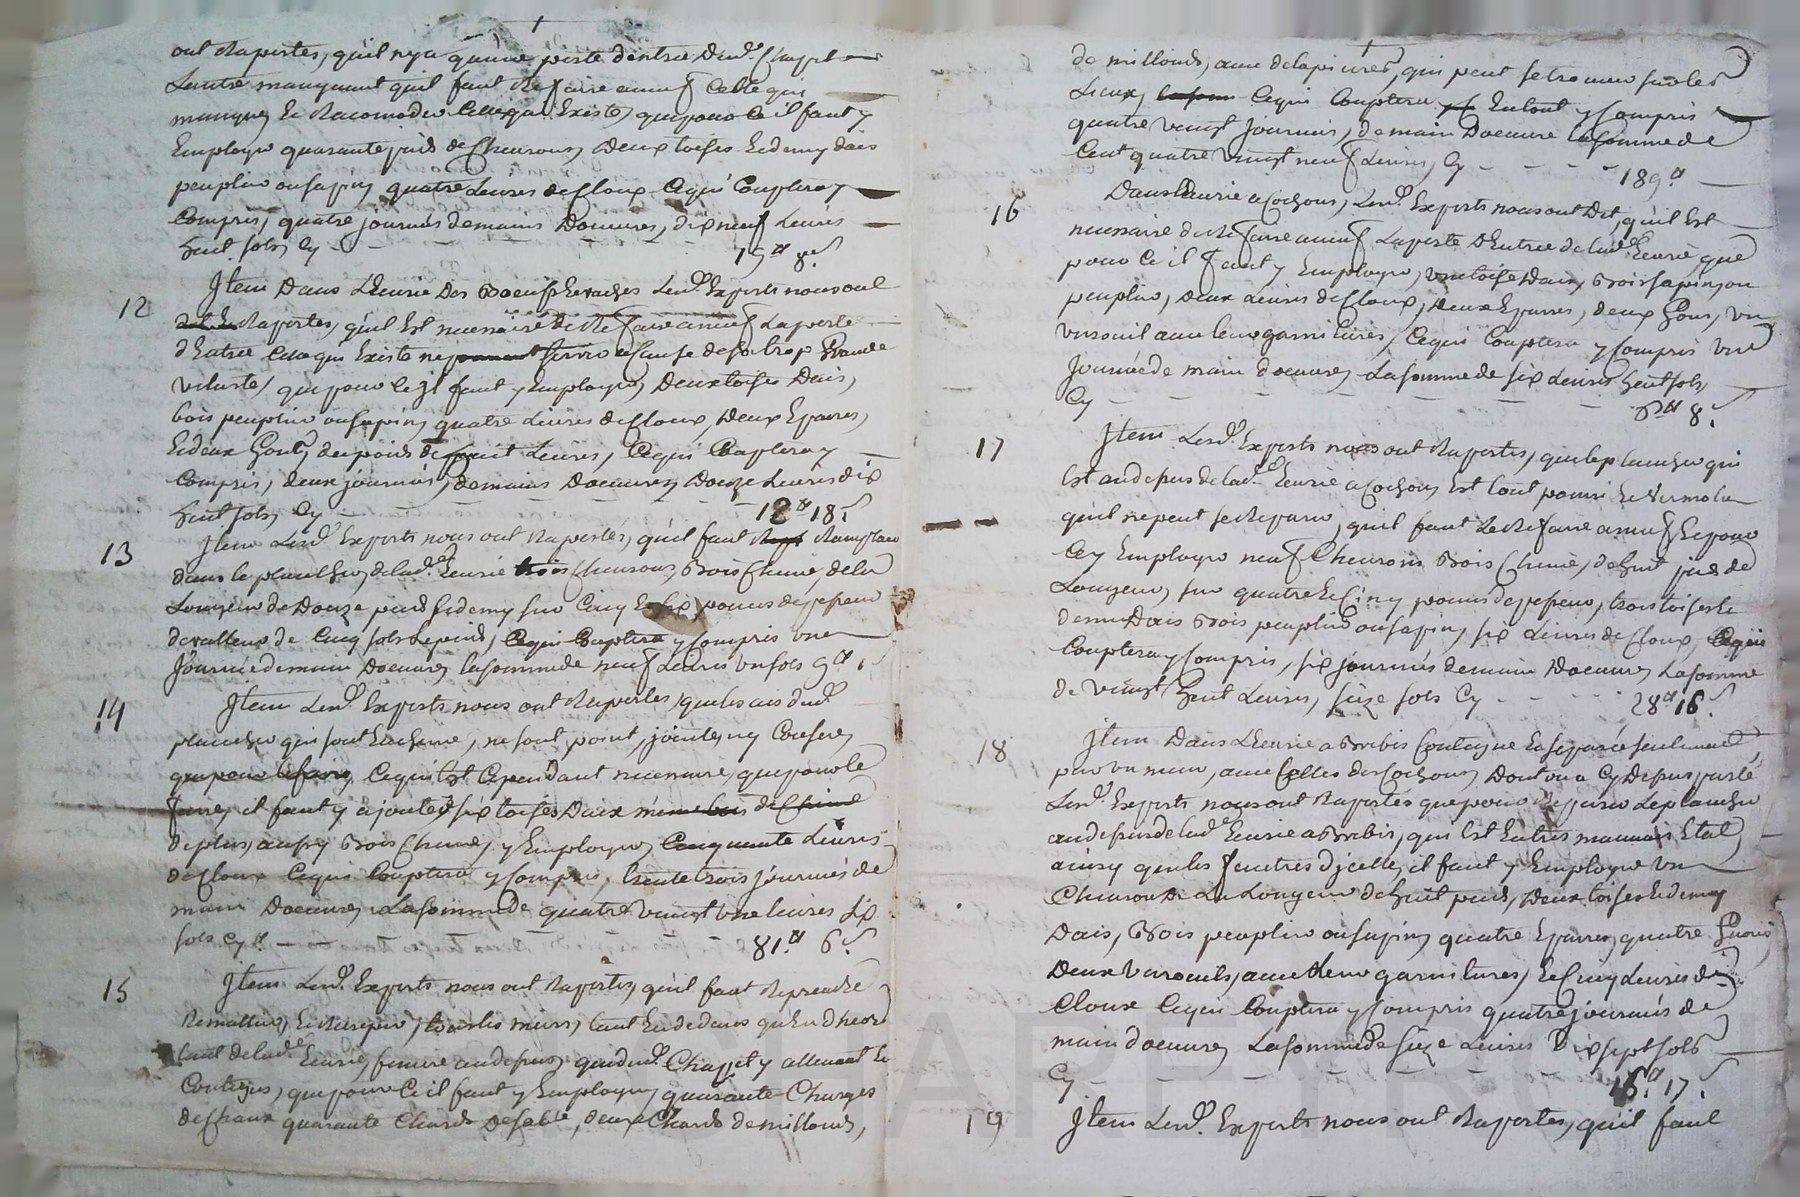 ont Raportés, quil nya qu'une porte dentrée Dud. Chapt
Lautre manquant quil faut Refaire aneuf Celle qui
manque, Et Racomoder Celle qui Existe, que pour Ce il faut y
Employer quarante pieds de Cheurons, deux toises Et demy dais
peuplier ou sapin, quatre Liures de Cloux Ce qui Couptera y
Compris, quatre journées demains Doeuures, dix neuf Liures
huit sols Cy - 19tt 8s
12
Item Dans L'Ecurie Des Boeufs Et vaches Lesd. Experts nous ont
Raportés, quil Est necessaire de Refaire aneuf La porte
d'Entrée Celle qui Existe ne servir a Cause de sa trop Grande
vetusté, que pour Ce jl faut y Employer, Deux toises Dais,
bois peuplier ou sapin, quatre Liures de Cloux, Deux Eparres,
Et deux Gons, du poids de huit Liures, Ce qui Couptera y
Compris, deux journées, demains Doeuures Douze Liures dix
huit sols Cy - 12tt 18s
13
Item Lesd. Experts nous ont Raportés, quil faut Ramplacer
dans le plancher de lad. Ecurie trois Cheurons, Bois Chene, dela
Longeur de Douze pieds Et demy sur Cinq Et six pouces depesseur
de valleur de Cinq sols Le pied, Ce qui Couptera y Compris une
Journée de main Doeuure, la somme de neuf Liures un sols 9tt 1s
14
Item Lesd. Experts nous ont Raportés, que les ais dud.
plancher qui sont En Chene, ne sont point, jointes ny
Ce qui Est Cependant necessaire, que pour le
faire, il faut y ajouter six toises Daix de Chene
de plus, aussy Bois Chene, y Employer, Cinquante Liures
de Cloux Ce qui Couptera y Compris, trente trois journées de
main Doeuure, La somme de quatre vingt une liures six
sols Cy - 81tt 6s
15
Item Lesd. Experts nous ont Raportés, quil faut Reprendre
tous les murs, tant En dedans qu'En dheors
tant de lad. Ecurie, feniere au dessus, que dud. Chapt y attenant Et
Contigus, que pour Ce il faut y Employer, quarante Charges
de Chaux quarante Chards de sable, deux Chards de millouds,
de millouds, auec de la pierres, qui peut se trouuer sur les
Lieux, Ce qui Couptera En tout y Compris
quatre vingt Journées, de main Doeuure La somme de
Cent quatre vingt neuf Liures, Cy - 189tt
16
Dans L'Ecurie a Cochons, Lesd. Experts nous ont Dit, quil Est
necessaire de Refaire aneuf La porte D'Entrée de lad. Ecurie que
pour Ce il faut y Employer, une toise Dais, Bois sapin, ou
peuplier, Deux Liures de Cloux, deux Eparres, deux Gons, un
uerouil auec leur garnitures, Ce qui Couptera y Compris une
journée de main doeuure, La somme de six Liures huit sols,
Cy - 6tt 8s
17
Item Lesd. Experts nous ont Raportés, que le plancher qui
Est au dessus de lad. Ecurie a Cochons, Est tout pourri Et vermolu
quil ne peut se Reparer, quil faut Le Refaire aneuf Et pour
Ce y Employer neuf Cheurons Bois Chene, de huit pieds de
Longeur, sur quatre Et Cinq pouces depesseur, trois toises Et
demi Dais Bois peuplier ou sapin, six Liures de Cloux, Ce qui
Couptera y Compris, six journées demain Doeuure, La somme
de vingt huit Liures, seize sols Cy - 28tt 16s
18
Item Dans L'Ecurie a Brebis Contigue Et separée seulement
par un mur, auec Celles des Cochons, Dont on a Cy Dessus parlé
Lesd. Experts nous ont Raportés que pour Reparer Le plancher
au dessus de lad. Ecurie a Brebis, qui Est En tres mauuais Etat,
ainsy que les fenetres D'jcelle, il faut y Employer un
Cheuron De La Longeur de huit pieds, Deux toises Et demy
Dais, Bois peuplier ou sapin, quatre Eparres, quatre Guons,
Deux Verouils, auec Leur garnitures, Et Cinq Liures de
Cloux Ce qui Couptera y Compris quatre journées de
main doeuure, La somme de seize Liures Dix sept sols
Cy - 16tt 17s
19
Item Lesd. Experts nous ont Raportés, quil faut